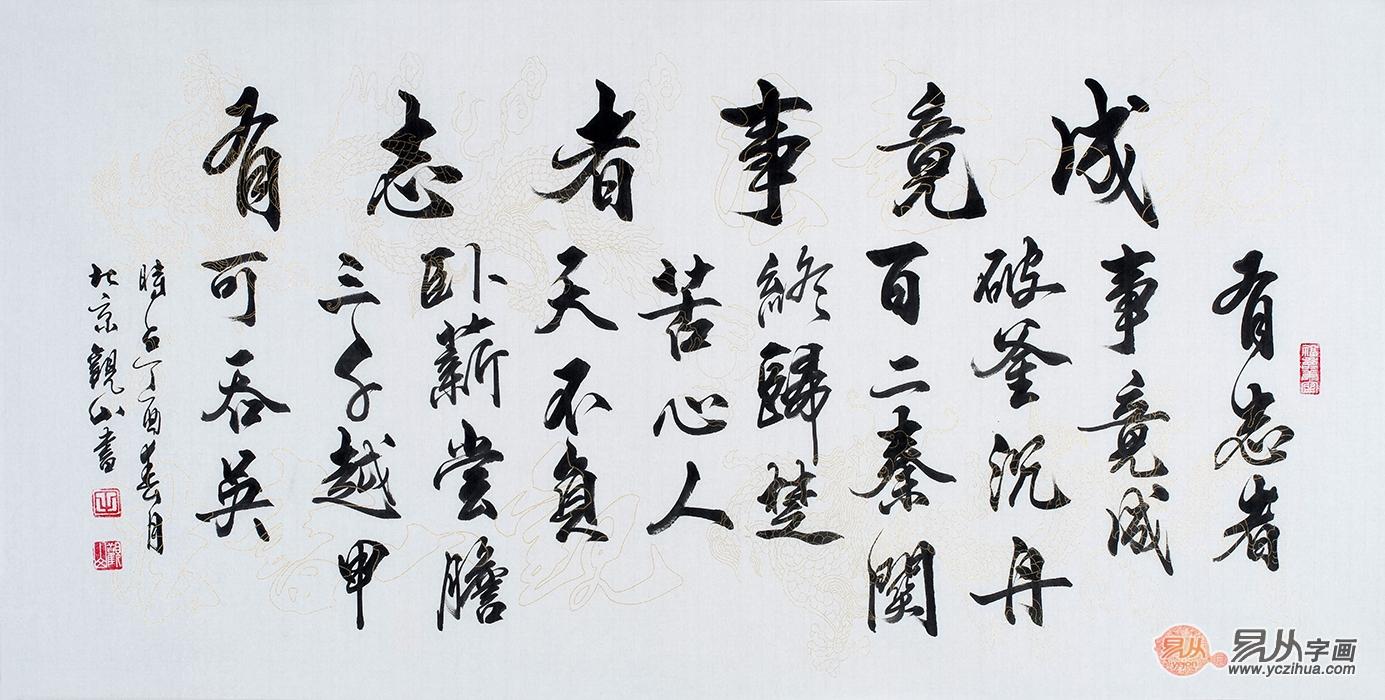 有志者事竟成
有志者
事竟成
破釜沉舟
百二秦關
終歸楚
苦心人
天不負
卧薪嘗膽
三千越甲
可吞吴
時在丁酉春月
北京觀山書
觀山
易从
易从字画
www.yczihua.com